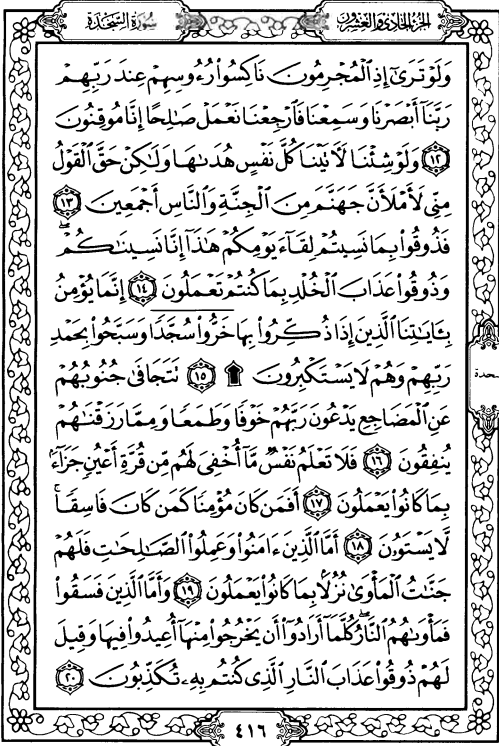 سُورَةُ السَّجْدَةِ الجُزْءُ الحَادِي وَالعِشْرُونَ
وَلَوْ تَرَىٰٓ إِذِ ٱلْمُجْرِمُونَ نَاكِسُوا۟ رُءُوسِهِمْ عِندَ رَبِّهِمْ
رَبَّنَآ أَبْصَرْنَا وَسَمِعْنَا فَٱرْجِعْنَا نَعْمَلْ صَٰلِحًا إِنَّا مُوقِنُونَ
١٢ وَلَوْ شِئْنَا لَءَاتَيْنَا كُلَّ نَفْسٍ هُدَىٰهَا وَلَٰكِنْ حَقَّ ٱلْقَوْلُ
مِنِّى لَأَمْلَأَنَّ جَهَنَّمَ مِنَ ٱلْجِنَّةِ وَٱلنَّاسِ أَجْمَعِينَ ١٣
فَذُوقُوا۟ بِمَا نَسِيتُمْ لِقَآءَ يَوْمِكُمْ هَٰذَآ إِنَّا نَسِينَٰكُمْ ۖ
وَذُوقُوا۟ عَذَابَ ٱلْخُلْدِ بِمَا كُنتُمْ تَعْمَلُونَ ١٤ إِنَّمَا يُؤْمِنُ
بِـَٔايَٰتِنَا ٱلَّذِينَ إِذَا ذُكِّرُوا۟ بِهَا خَرُّوا۟ سُجَّدًا وَسَبَّحُوا۟ بِحَمْدِ
رَبِّهِمْ وَهُمْ لَا يَسْتَكْبِرُونَ ۩ ١٥ تَتَجَافَىٰ جُنُوبُهُمْ
عَنِ ٱلْمَضَاجِعِ يَدْعُونَ رَبَّهُمْ خَوْفًا وَطَمَعًا وَمِمَّا رَزَقْنَٰهُمْ
يُنفِقُونَ ١٦ فَلَا تَعْلَمُ نَفْسٌ مَّآ أُخْفِىَ لَهُم مِّن قُرَّةِ أَعْيُنٍ جَزَآءًۢ
بِمَا كَانُوا۟ يَعْمَلُونَ ١٧ أَفَمَن كَانَ مُؤْمِنًا كَمَن كَانَ فَاسِقًا ۚ
لَّا يَسْتَوُۥنَ ١٨ أَمَّا ٱلَّذِينَ ءَامَنُوا۟ وَعَمِلُوا۟ ٱلصَّٰلِحَٰتِ فَلَهُمْ
جَنَّٰتُ ٱلْمَأْوَىٰ نُزُلًۢا بِمَا كَانُوا۟ يَعْمَلُونَ ١٩ وَأَمَّا ٱلَّذِينَ فَسَقُوا۟
فَمَأْوَىٰهُمُ ٱلنَّارُ ۖ كُلَّمَآ أَرَادُوٓا۟ أَن يَخْرُجُوا۟ مِنْهَآ أُعِيدُوا۟ فِيهَا وَقِيلَ
لَهُمْ ذُوقُوا۟ عَذَابَ ٱلنَّارِ ٱلَّذِى كُنتُم بِهِۦ تُكَذِّبُونَ ٢٠
٤١٦